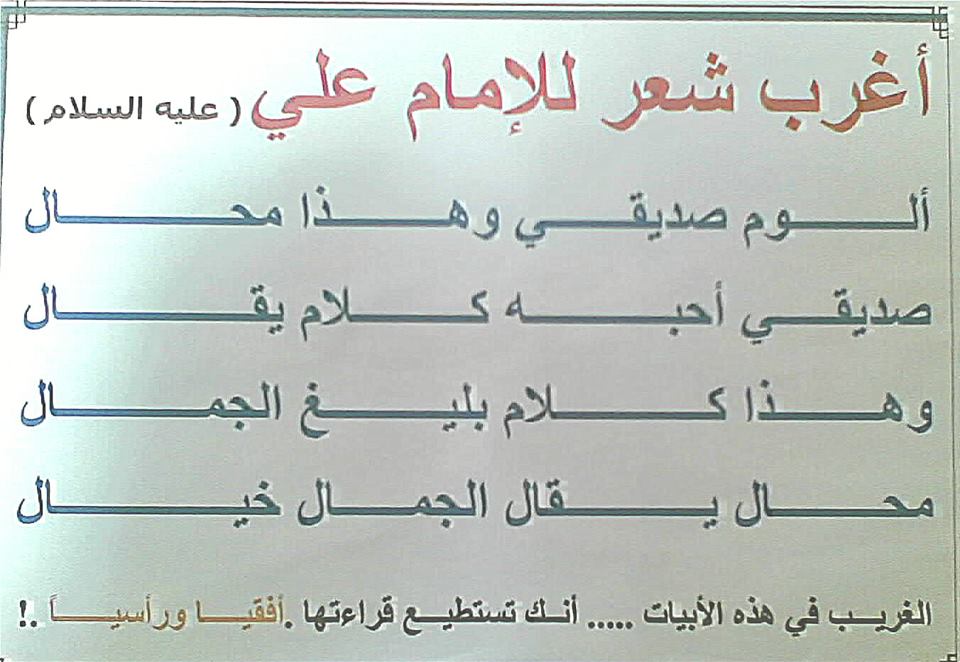 أغرب شعر للإمام علي ( عليه السلام )
ألـــوم صديقـــي وهـــذا محـــال
صديقـــي أحبـــه كـــلام يقـــال
وهـــذا كـــلام بليـــغ الجمـــال
محـــال يـــقال الجمـــال خيـــال
الغريـــب في هذه الأبيات ..... أنـــك تستطيـــع قراءتها .أفقيـــا ورأسيـــاً .!